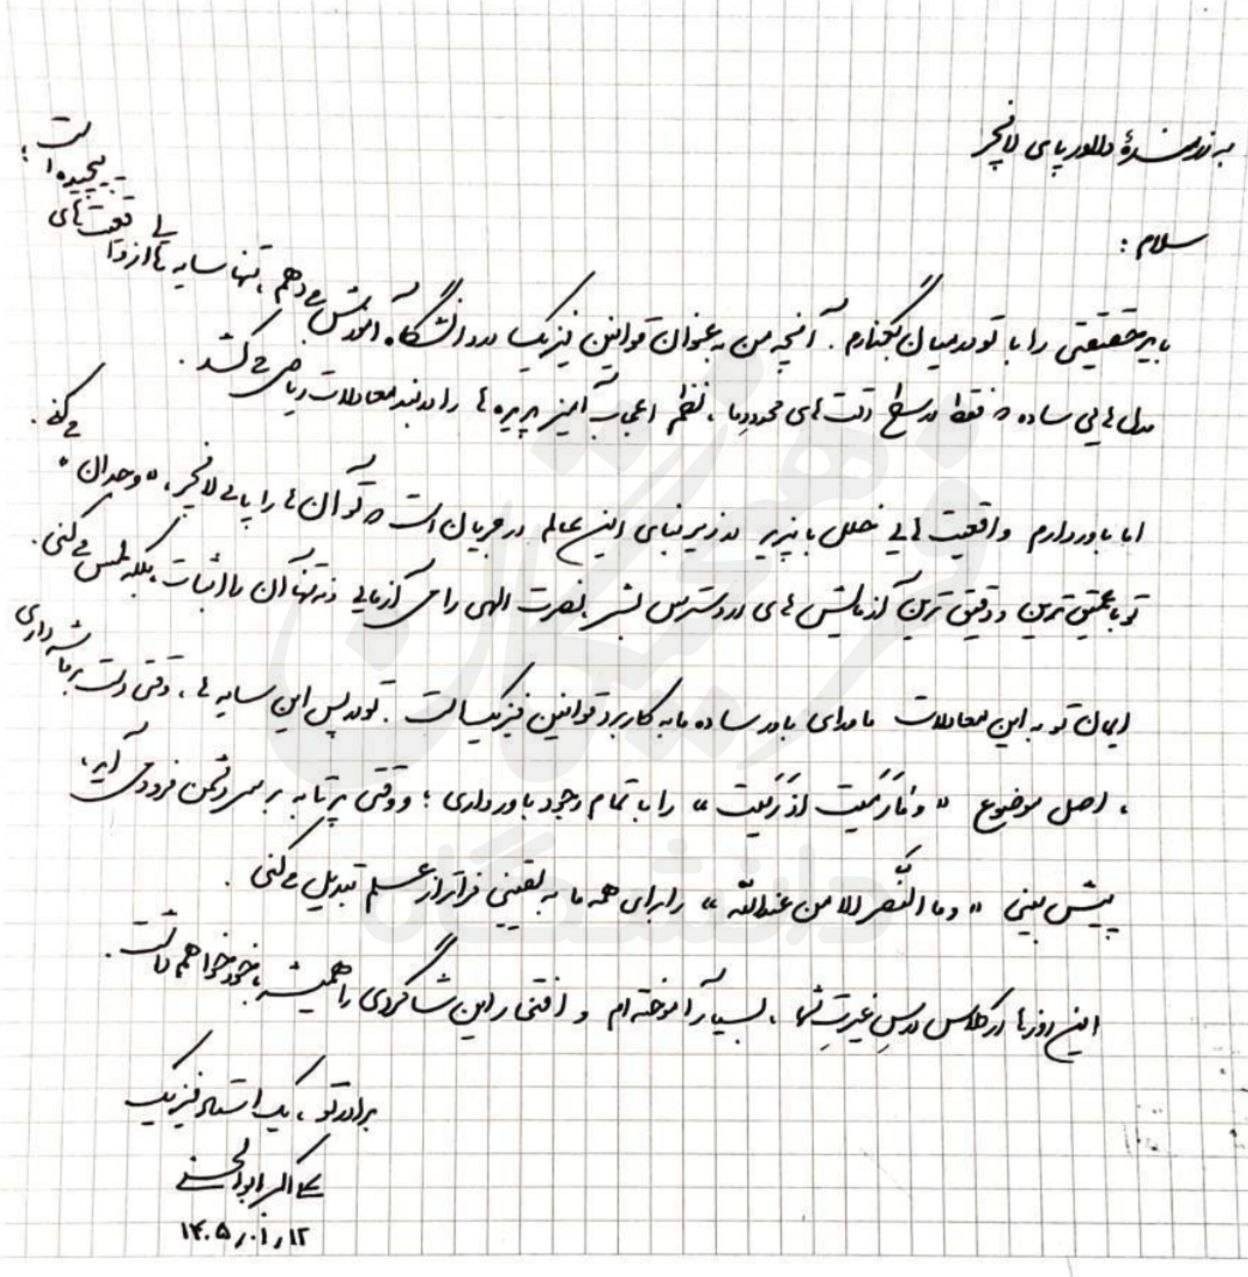 به رزمندهٔ دلاور پای لانچر
سلام :
باید حقیقتی را با تو در میان بگذارم . آنچه من به عنوان قوانین فیزیک در دانشگاه آموزش می دهم ، تنها سایه ای از واقعیت های پیچیده است ؛
مدل هایی ساده که فقط در سطح دقت های محدود ما ، نظم اعجاب آمیز پدیده ها را در بند معادلات ریاضی می کشد .
اما باور دارم واقعیت هایی خلل ناپذیر در زیر بنای این عالم در جریان است که تو آن ها را پای لانچر ، « وجدان » می کنی .
تو با عمیق ترین و دقیق ترین آزمایش های در دسترس بشر ، نصرت الهی را می آزمایی و نه تنها آن را اثبات ، بلکه لمس می کنی .
ایمان تو به این معادلات ماورای باور ساده ما به کاربرد قوانین فیزیک است . تو در پس این سایه ها ، وقتی دست بر ماشه داری
، اصل موضوع « و ما رَمَیتَ اذ رَمَیتَ » را با تمام وجود باور داری ؛ و وقتی پرتابه بر سر دشمن فرود می آید ،
پیش بینی « و ما النَّصر الا من عندالله » را برای همه ما به یقینی فراتر از علم تبدیل می کنی .
این روزها در کلاس درسِ غیرتِ شما ، بسیار آموخته ام و افتخار این شاگردی را همیشه با خود خواهم داشت .
برادر تو ، یک استاد فیزیک
اکبر ابوالحسنی
۱۴۰۵/۰۱/۱۲
فرهیختگان
دانشگاه